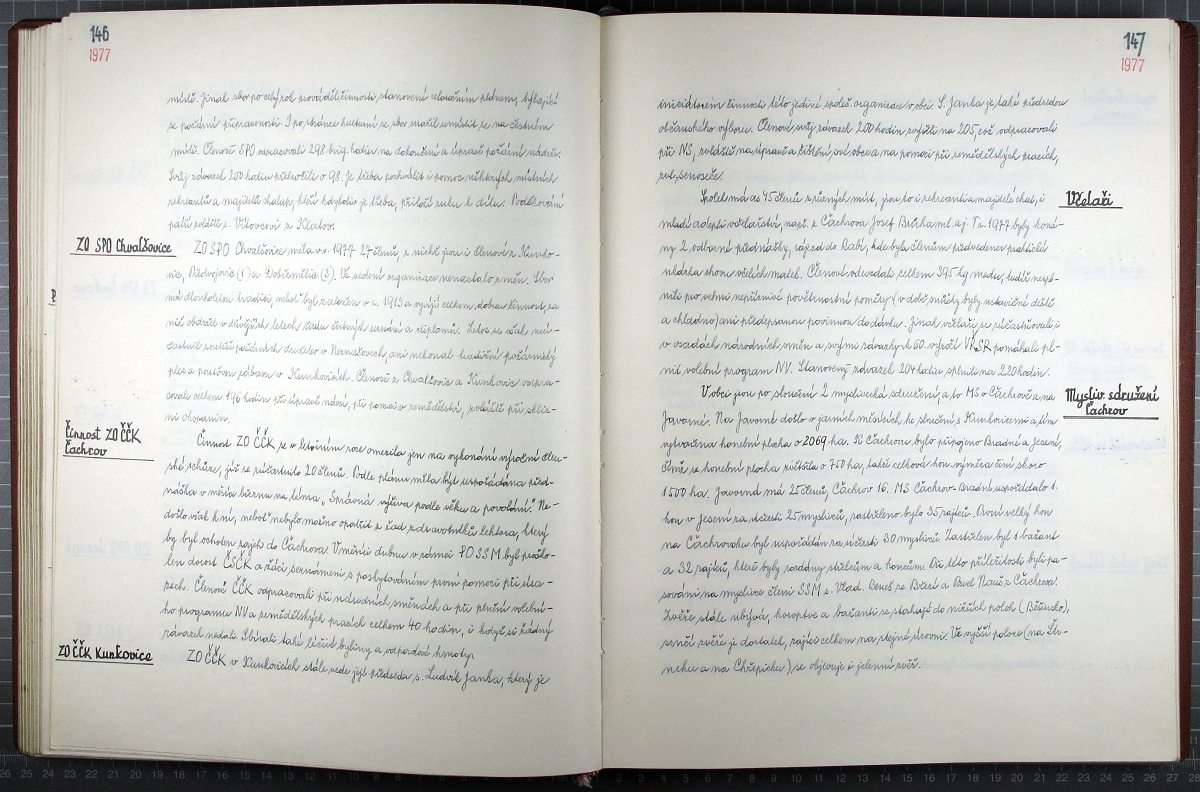 146
1977
místě. Jinak sbor po celý rok prováděl činnosti, stanovené celoročním plánem, týkající
se požární připravenosti. I po stránce kulturní se sbor snažil umístit se na čestném
místě. Členové SPO odpracovali 298 brig. hodin na dokončení a úpravě požární nádrže.
Svůj závazek 200 hodin překročili o 98. Je třeba pochválit i pomoc některých místních
rekreantů a majitelů chalup, kteří kdykoliv je třeba, přiloží ruku k dílu. Poděkování
patří zvláště s. Vítovcovi z Klatov.
ZO SPO Chvalšovice
ZO SPO Chvalšovice měla v r. 1977 27 členů, z nichž jsou i členové z Kunko-
vic, Předvojovic (1) a Dobřemilic (3). Ve vedení organizace nenastalo změn. Sbor
má dlouholetou tradici, neboť byl založen v r. 1913 a vyvíjí celkem dobrou činnost, za
niž obdržel v dřívějších letech řadu čestných uznání a diplomů. Letos se však nezú-
častnil soutěží požárních družstev v Nemalovech, ani nekonal tradiční požárnický
ples a pouťovou zábavu v Kunkovicích. Členové z Chvalšovic a Kunkovic odpra-
covali celkem 196 hodin při úpravě návsi, při pomoci v zemědělství, zvláště při skliz-
ni okopanin.
Činnost ZO ČČK
Čachrov
Činnost ZO ČČK se v letošním roce omezila jen na vykonání výroční člen-
ské schůze, jíž se zúčastnilo 20 členů. Podle plánu měla být uspořádána před-
náška v měsíci březnu na téma „Správná výživa podle věku a povolání." Ne-
došlo však k ní, neboť nebylo možno opatřit z řad zdravotníků lektora, který
by byl ochoten zajet do Čachrova. V měsíci dubnu v rámci PO SSM byl proško-
len dorost ČSČK a žáci seznámeni s poskytováním první pomoci při úra-
zech. Členové ČČK odpracovali při národních směnách a při plnění voleb-
ho programu NV a zemědělských pracích celkem 40 hodin, i když si žádný
závazek nedali. Sbírali také léčivé byliny a odpadové hmoty.
ZO ČČK Kunkovice
ZO ČČK v Kunkovicích stále vede její předseda s. Ludvík Janka, který je
147
1977
iniciátorem činnosti této jediné společ. organizace v obci. S. Janka je také předsedou
občanského výboru. Členové svůj závazek 200 hodin zvýšili na 205, což odpracovali
při NS, zvláště na úpravě a čištění své obce a na pomoci při zemědělských pracích,
zvl. senoseče.
Včelaři
Spolek má as 45 členů z různých míst, jsou to i rekreanti a majitelé chat, i
mladí adepti včelařství, např. z Čachrova Josef Beckaml aj. V r. 1977 byly koná-
ny 2 odborné přednášky, zájezd do Babí, kde byla členům předvedena praktická
ukázka chovu včelích matek. Členové odevzdali celkem 395 kg medu, tudíž nespl-
nili pro velmi nepříznivé povětrnostní poměry (v době snůšky byly ustavičné deště
a chladno) ani předepsanou povinnou dodávku. Jinak včelaři se zúčastňovali i
v osadách národních směn a svými závazky k 60. výročí VŘSR pomáhali pl-
nit volební program NV. Stanovený závazek 204 hodin splnili na 220 hodin.
Mysliv. sdružení
Čachrov
V obci jsou po sloučení 2 myslivecká sdružení, a to MS v Čachrově a na
Javorné. Na Javorné došlo v jarních měsících ke sloučení s Kunkovicemi a tím
vytvořena honební plocha o 2069 ha. K Čachrovu bylo připojeno Bradné a Jesení,
čímž se honební plocha zvětšila o 750 ha, takže celková hon. výměra činí skoro
1500 ha. Javorná má 25 členů, Čachrov 16. MS Čachrov-Bradné uspořádalo 1.
hon v Jesení za účasti 25 myslivců, zastřeleno bylo 35 zajíců. První velký hon
na Čachrovsku byl uspořádán za účasti 30 myslivců. Zastřelen byl 1 bažant
a 32 zajíců, které byly rozdány střelcům a honcům. Při této příležitosti byli pa-
sováni na myslivce členi SSM s. Vlad. Beneš ze Březí a Pavel Nauš z Čachrova.
Zvěře stále ubývá, koroptve a bažanti se stahují do nižších poloh (Běšinsko),
srnčí zvěře je dostatek, zajíců celkem na stejné úrovni. Ve vyšší poloze (na Šte-
neku a na Chřepicku) se objevuje i jelenní zvěř.